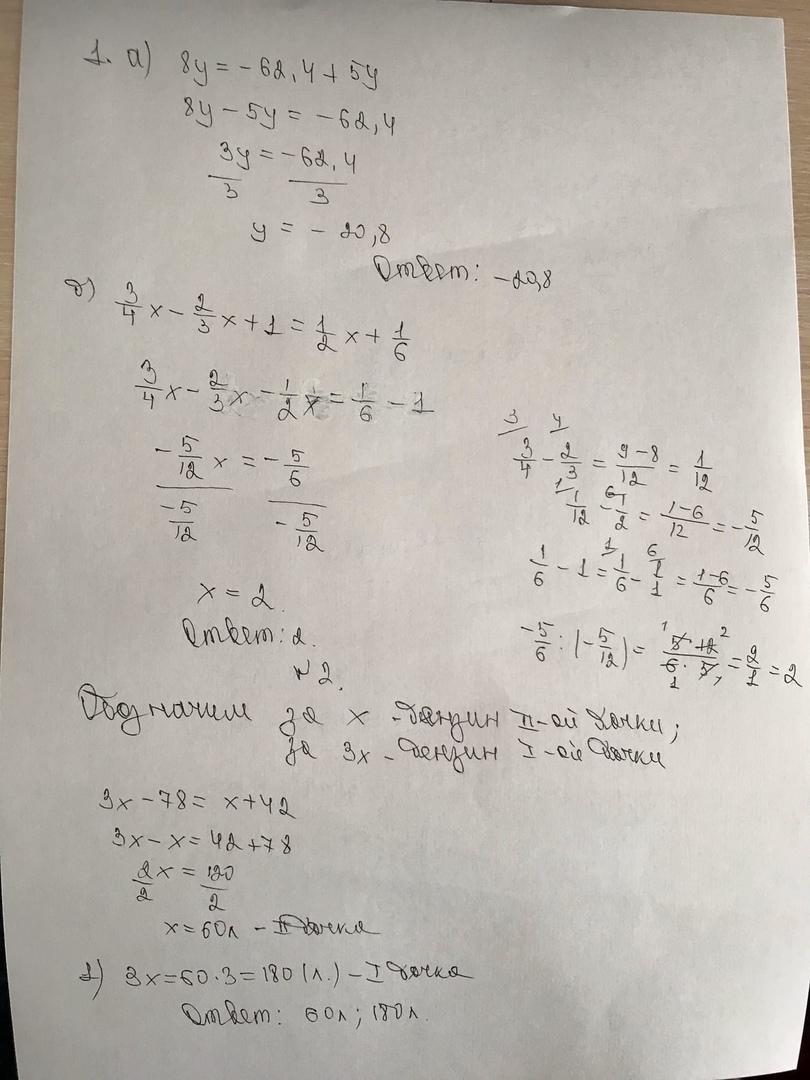 1. а) 8y = -62,4 + 5y
8y - 5y = -62,4
3y/3 = -62,4/3
y = -20,8
Ответ: -20,8
б) 3/4 x - 2/3 x + 1 = 1/2 x + 1/6
3/4 x - 2/3 x - 1/2 x = 1/6 - 1
-5/12 x = -5/6
-5/12 -5/12
x = 2.
Ответ: 2.
3 4
3/4 - 2/3 = 9-8/12 = 1/12
1 6
1/12 - 1/2 = 1-6/12 = -5/12
1 6
1/6 - 1 = 1/6 - 1/1 = 1-6/6 = -5/6
-5/6 : (-5/12) = 5·12/6·5 = 2/1 = 2
№2.
Обозначим за x - бензин II-ой бочки;
за 3x - бензин I-ой бочки
3x - 78 = x + 42
3x - x = 42 + 78
2x/2 = 120/2
x = 60л - II бочка
1) 3x = 60·3 = 180 (л.) - I бочка
Ответ: 60л; 180л.